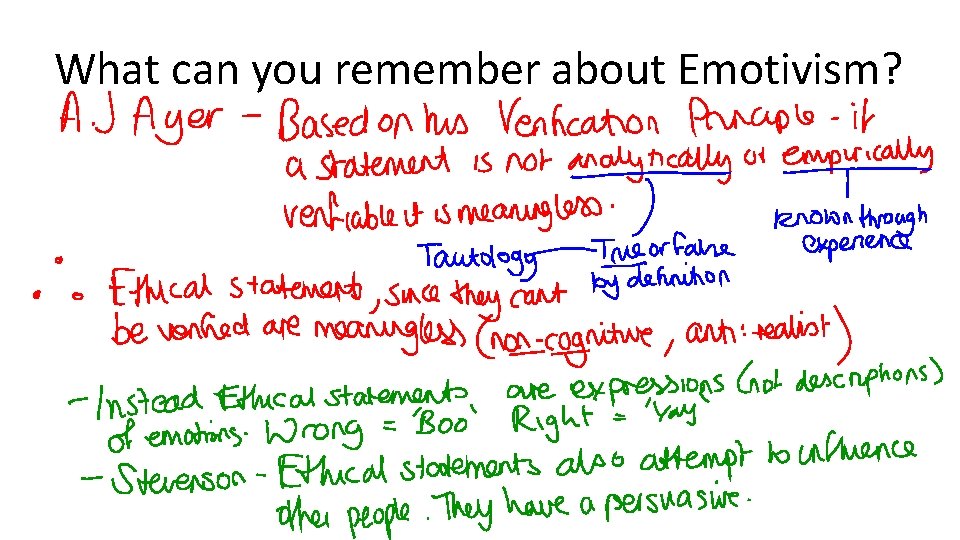 What can you remember about Emotivism?
A.J Ayer - Based on his Verification Principle - if
a statement is not analytically or empirically
verifiable it is meaningless.
known through
experience
Tautology - True or false
by definition
∴ Ethical statements, since they can't
be verified are meaningless (non-cognitive, anti-realist)
- Instead Ethical statements are expressions (not descriptions)
of emotions. Wrong = 'Boo' Right = 'Yay'
- Stevenson - Ethical statements also attempt to influence
other people. They have a persuasive.